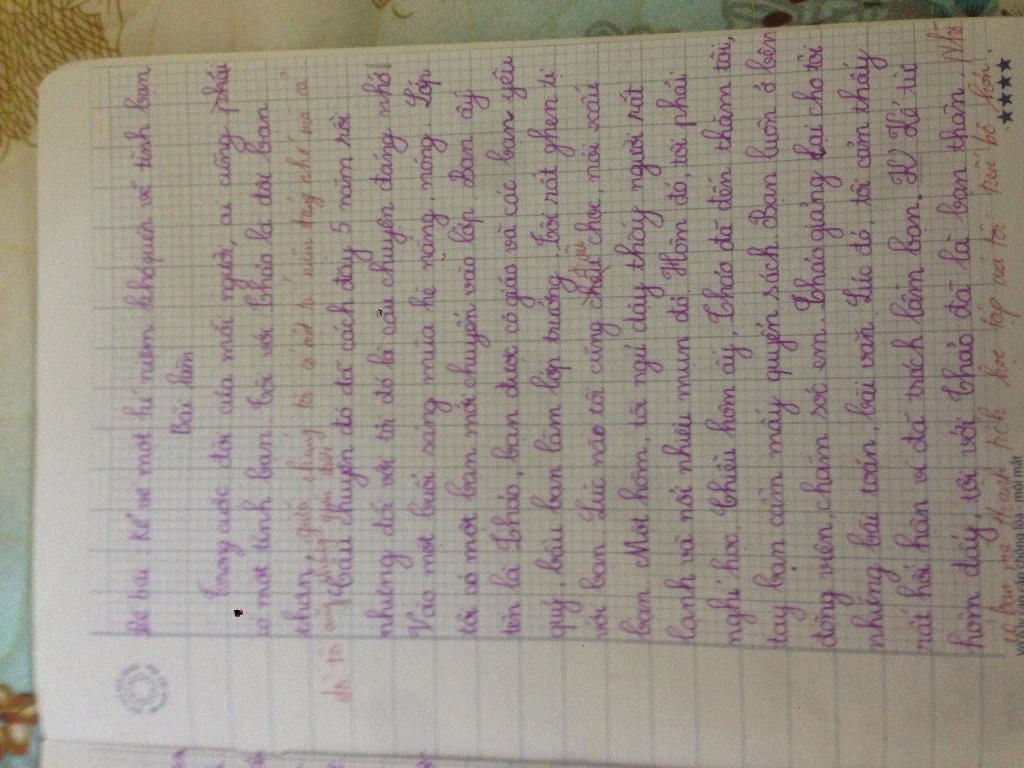 Đề bài : Kể về một kỉ niệm khó quên về tình bạn
Bài làm
Trong cuộc đời của mỗi người, ai cũng phải
có một tình bạn. Tôi với Thảo là đôi bạn
thân, giữa chúng tôi có
Câu chuyện đó đã cách đây 5 năm rồi
nhưng đối với tôi đó là câu chuyện đáng nhớ
Vào một buổi sáng mùa hè nắng, nóng. Lớp
tôi có một bạn mới chuyển vào lớp. Bạn ấy
tên là Thảo, bạn được cô giáo và các bạn yêu
quý, bầu bạn làm lớp trưởng. Tôi rất ghen tị
với bạn. Lúc nào tôi cũng chọc, nói xấu
bạn. Một hôm, tôi ngủ dậy thấy người rất
lanh và nổi nhiều mụn đỏ. Hôm đó, tôi phải
nghỉ học. Chiều hôm ấy, Thảo đã đến thăm tôi,
tay bạn cầm mấy quyển sách. Bạn luôn ở bên
động viên, chăm sóc em. Thảo giảng lại cho tôi
những bài toán, bài văn. Lúc đó, tôi cảm thấy
rất hối hận vì đã trách lầm bạn. Kể từ
hôm đấy, tôi với Thảo đã là bạn thân. Nhờ
bạn mà thành tích học tập của tôi tiến bộ hơn.